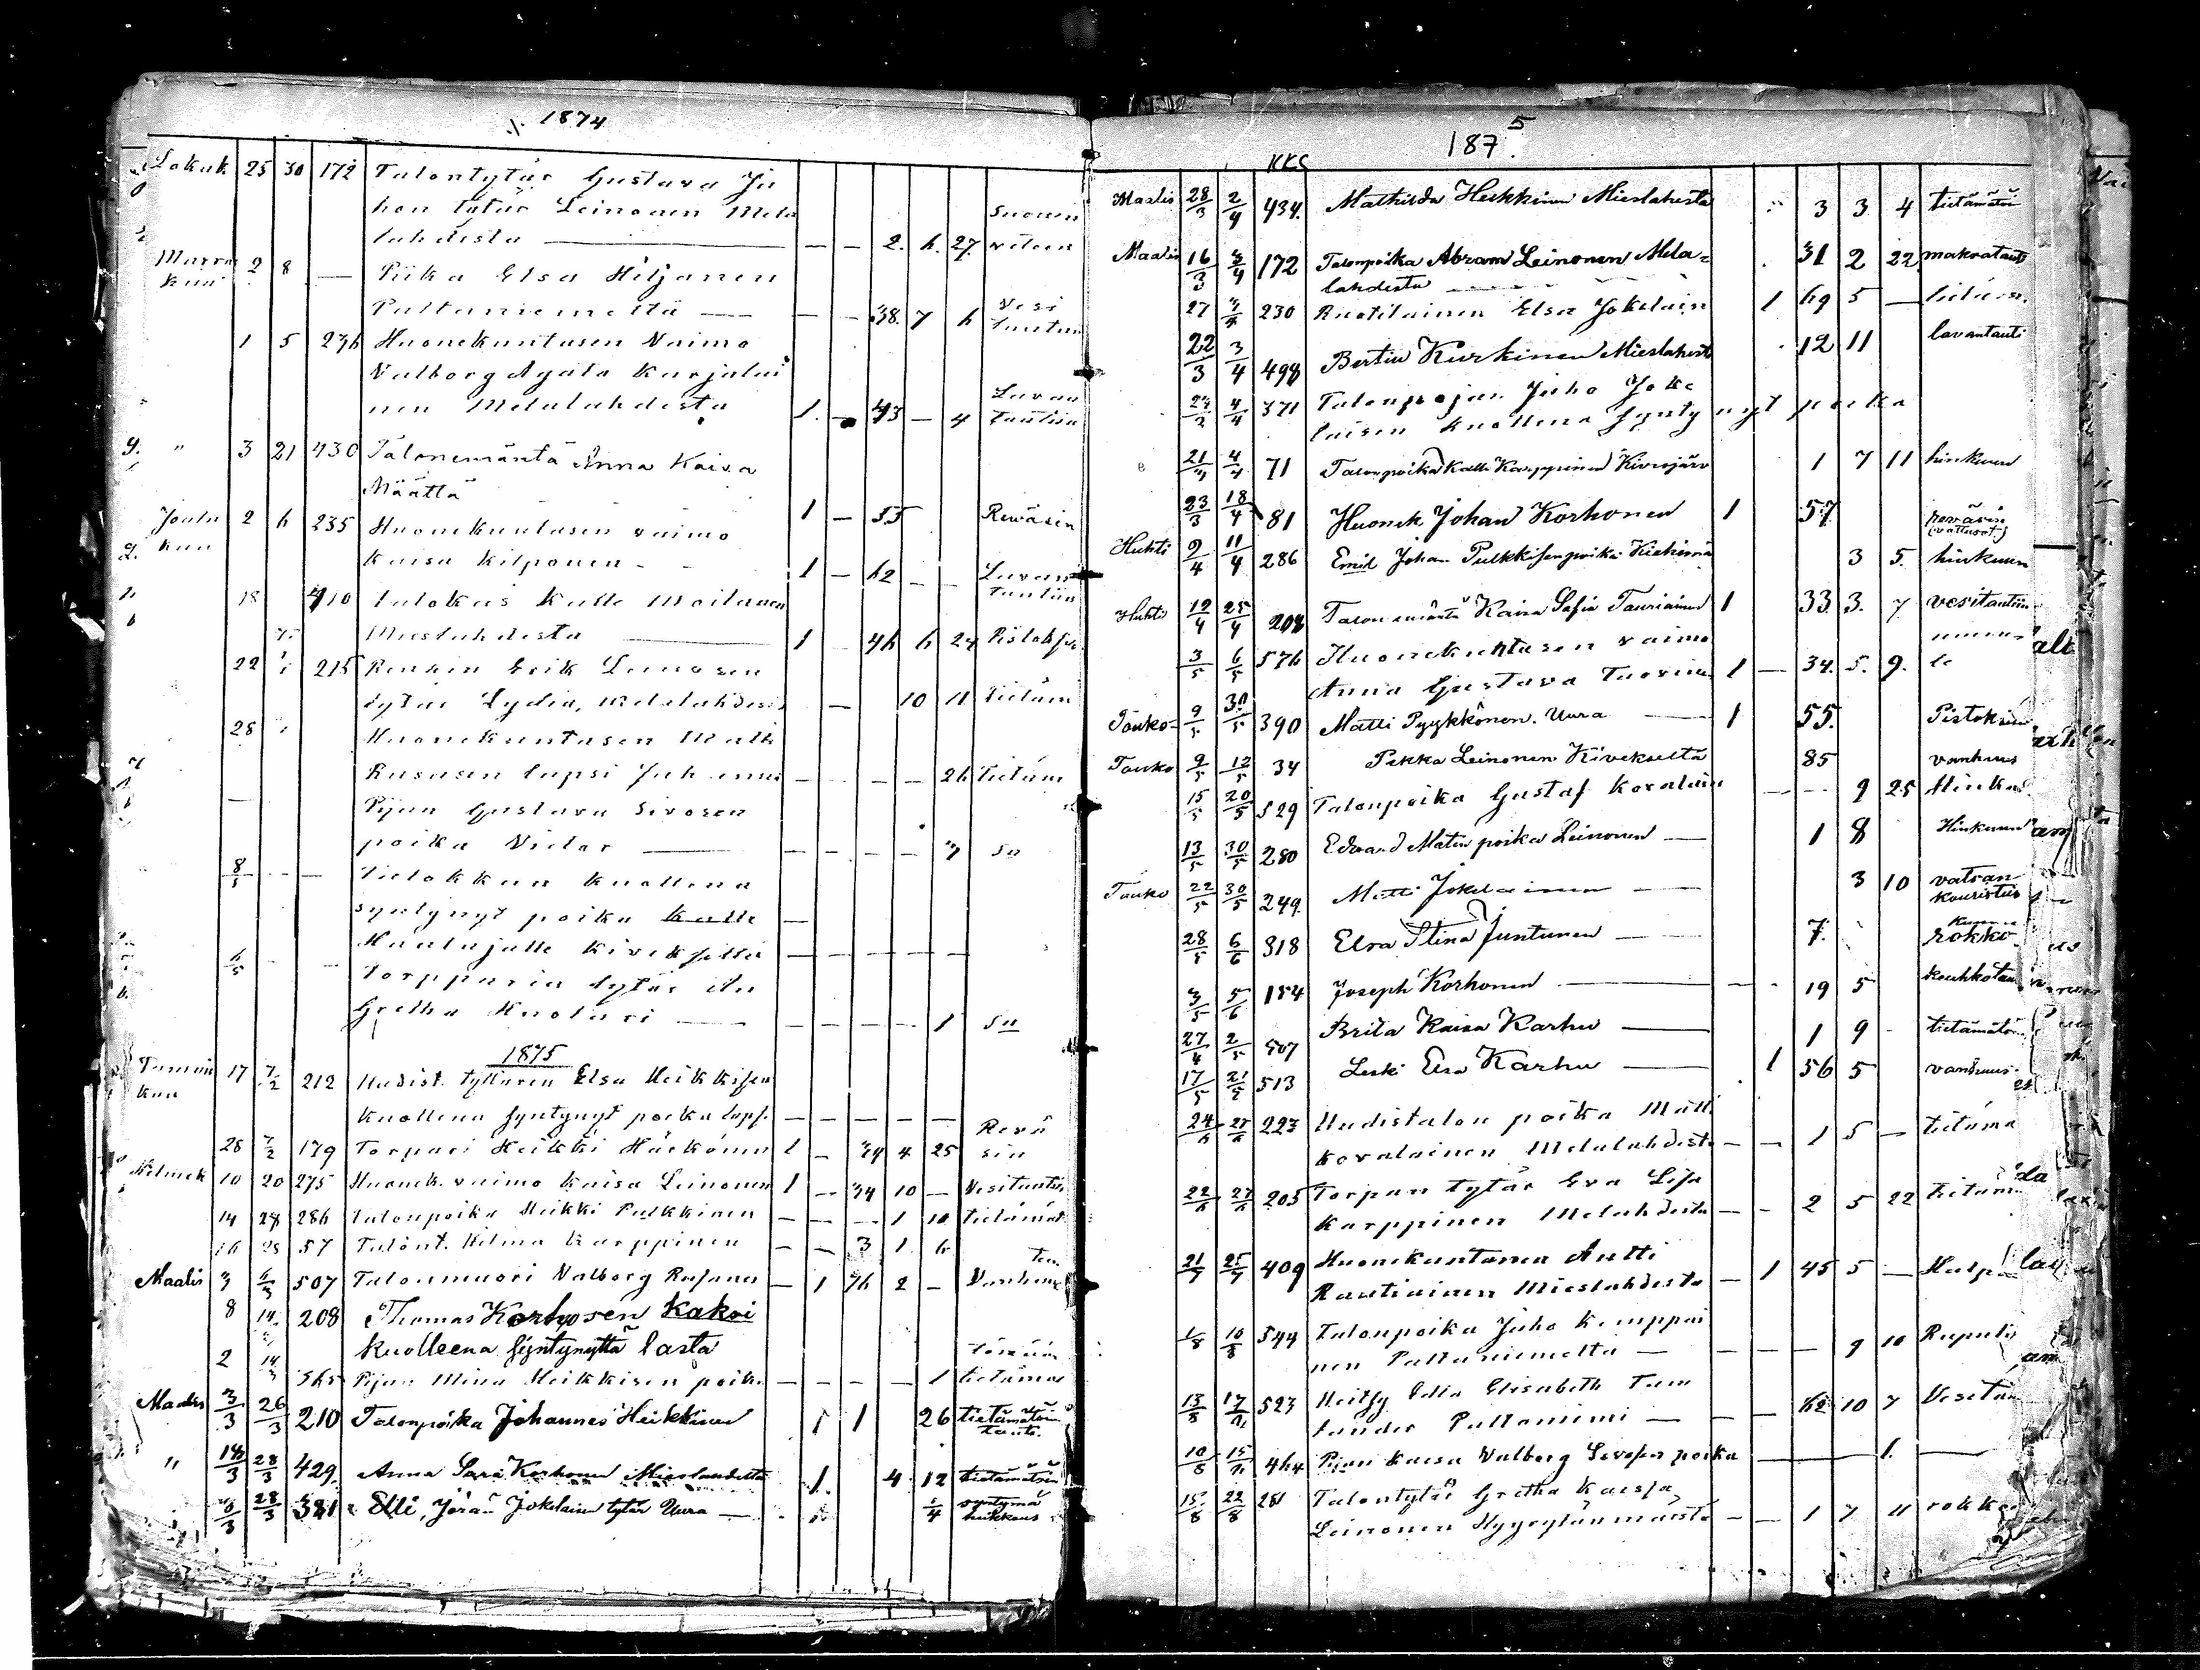 1874
Lokak 25 30 172 Talontytär Gustava Ju
hon tytär Leinonen Mela
lahdesta — — 2. 6. 27. Suonen vetoon
Marras kuu 2 8 — Piika Elsa Hiljanen
Paltaniemeltä — — 38. 7 6 Vesi tautiin
1 5 236 Huonekuntasen Vaimo
Valborg Agata Karjalai
nen Melalahdesta 1. — 43 — 4 Lavan tautiin
" 3 21 430 Talonemäntä Anna Kaisa
Määttä 1 — 55 Reväsin
Joulu kuu 2 6 235 Huonekuntasen vaimo
Kaisa Kilponen 1 — 62 — — Lavan tautiin
18 410 Talokas Kalle Moilanen
Mieslahdesta 1 — 46 6 24 Pistoksii
22 215 Renkin Erik Leinosen
tytär Lydia, Melalahdes — 10 11 Tietäm
28 Huonekuntasen Matti
Rusasen lapsi Juh — — — — 26 Tietäm
— Pijan Gustava Sivosen
poika Victor — — — — — 3 Sa
8/5 — — Kuollena
syntynyt poika Kalle —
Haatajalle Kivekseltä — — — — —
6/5 — — Torpparin tytär
Gretha Huoturi — — — — — 1 Sa
1875
Tammi kuu 17 7/2 212 Uudist. tyttären Elsa Heikkisen
kuollena syntynyt poika laps. — — — — —
28 7/2 179 Torpari Heikki Härkönen 1 — 39 4 25 Revä sin
Helmik 10 20 275 Huonek. vaimo Kaisa Leinonen 1 — 34 10 — Vesitautiin
14 28 286 Talonpoika Heikki Pulkkinen — — — 1 10 tietämät
16 28 57 Talont. Hilma Karppinen — — 3 1 6
Maalis 3 6/3 507 Talonmuori Valborg Rusanen — 1 76 2 — Vanhuu teen
8 14 208 Thomas Korhosen kaksi
2 14/3 kuolleena syntynyttä lasta
565 Pijan Mina Heikkisen poika — — — — 1 tietämät
Maalis 3/3 26/3 210 Talonpoika Johannes Heikkinen 1 1 26 tietämätön tauti.
" 18/3 28/3 429. Anna Sara Korhonen Mieslahdelta 1. 4 12 tietämätön
28/3 381 Elli, Jöran Jokelainen tytär Uura — 1/4 syntymä heikkous
187.5
KKS
Maalis 28/3 2/4 434. Mathilda Heikkinen Mieslahesta 3 3 4 tietämätön
Maalis 16/3 3/4 172 Talonpoika Abram Leinonen Mela=
lahdesta 31 2 22 maksatauti
27 3/4 230 Ruotilainen Elsa Jokelain 1 69 5 — tietäm.
22/3 3/4 498 Bertta Kurkinen Mieslahest 12 11 lavantauti
4/4 371 Talonpojan Juho Joke
laisen kuollena synty nyt poika
21/3 4/4 71 Talonpoika Kalle Karppinen Kivesjärv 1 7 11 hinkuun
23/3 18/4 81 Huonek Johan Korhonen 1 57 reväsin (vattusot.)
Huhti 9/4 11/4 286 Emil Johan Pulkkisen poika Kiehimä 3 5. hinkuun
Huhti 12/4 25/4 208 Talon emäntä Kaisa Sofia Tauriainen 1 33. 3. 7 vesitautiin
3/5 6/5 576 Huonekuntasen vaimo
Anna Gustava Tuovine 1 — 34. 5. 9.
Touko= 9/5 30/5 390 Matti Pyykkönen. Uura — 1 55. Pistoksiin
Touko 9/5 12/5 34 Pekka Leinonen Kivekseltä 85 vanhuus
15/5 20/5 529 Talonpoika Gustaf Kovalain — — 9 25 Hinku
13/5 30/5 280 Edvard Matin poika Leinonen — 1 8 Hinkuun
Touko 22/5 30/5 249. Matti Jokelainen — 3 10 vatsan kouristus
28/5 6/6 318 Elsa Stina Juntunen — 7. rokko
3/5 5/6 184 Joseph Korhonen — 19 5 keuhkotau
27/4 2/5 507 Brita Kaisa Karhu — 1 9 - tietämätön
17/5 21/5 513 Leski Elsa Karhu — 1 56 5 vanhuus
24/6 27/6 223 Uudistalon poika Matti
Kovalainen Melalahdesta — — 1 5 — tietämä
22/6 27/6 205 Torpan tytär Eva Lisa
Karppinen Melalahdesta — — 2 5 22 tietäm
21/7 25/7 409 Huonekuntanen Antti
Rautiainen Mieslahdesta — 1 45 5 — Halp
1/8 10/8 544 Talonpoika Juho Kemppai
nen Paltaniemeltä — — — — 9 10 Ruputi
13/8 17/8 523 Neitsy Edla Elisabeth Tam
lander Paltaniemi — — — 62 10 7 Vesitau
10/8 15/8 464 Pijan Kaisa Valborg Sivosen poika — — 1. —
15/8 22/8 281 Talontytär Gretha Kaisa
Leinonen Hyyrylänmäestä — — 1 7 11 rokko